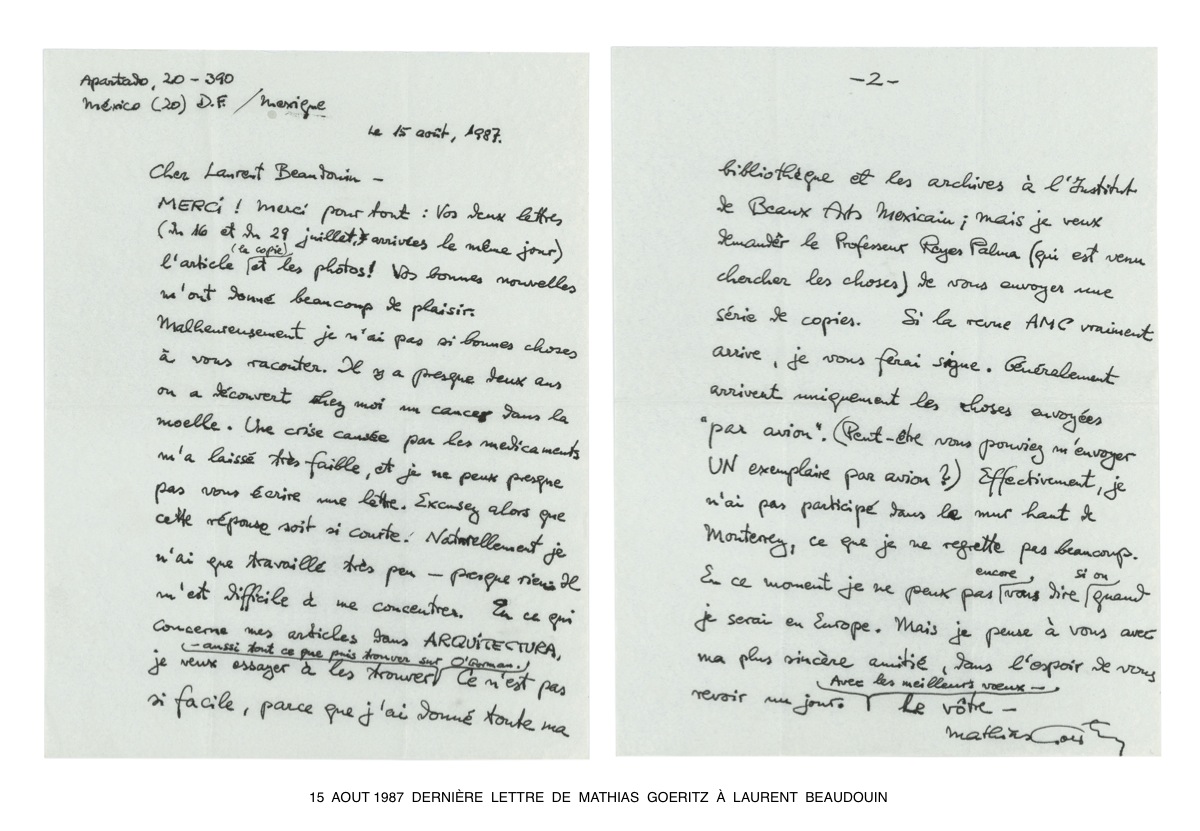 Apartado, 20 - 390
México (20) D.F. / Mexique
Le 15 août, 1987.
Cher Laurent Beaudouin -
MERCI ! Merci pour tout : Vos deux lettres
(du 16 et du 29 juillet, arrivées le même jour)
(la copie)
l'article et les photos! Vos bonnes nouvelles
m'ont donné beaucoup de plaisir.
Malheureusement je n'ai pas si bonnes choses
à vous raconter. Il y a presque deux ans
on a découvert chez moi un cancer dans la
moelle. Une crise causée par les medicaments
m'a laissé très faible, et je ne peux presque
pas vous écrire une lettre. Excusez alors que
cette réponse soit si courte! Naturellement je
n'ai que travaillé très peu - presque rien. Il
m'est difficile à me concentrer. En ce qui
concerne mes articles dans ARQUITECTURA,
- aussi tout ce que puis trouver sur O'Gorman.)
je veux essayer à les trouver Ce n'est pas
si facile, parce que j'ai donné toute ma
-2-
bibliothèque et les archives à l'Institut
de Beaux Arts Mexicain ; mais je veux
demander le Professeur Reyes Palma (qui est venu
chercher les choses) de vous envoyer une
série de copies. Si la revue AMC vraiment
arrive, je vous ferai signe. Généralement
arrivent uniquement les choses envoyées
"par avion". (Peut-être vous pouviez m'envoyer
UN exemplaire par avion ?) Effectivement, je
n'ai pas participé dans le mur haut de
Monterrey, ce que je ne regrette pas beaucoup.
encore si ou
En ce moment je ne peux pas vous dire quand
je serai en Europe. Mais je pense à vous avec
ma plus sincère amitié, dans l'espoir de vous
Avec les meilleurs vœux -
revoir un jour. Le vôtre -
Mathias Goeritz
15 AOUT 1987 DERNIÈRE LETTRE DE MATHIAS GOERITZ À LAURENT BEAUDOUIN